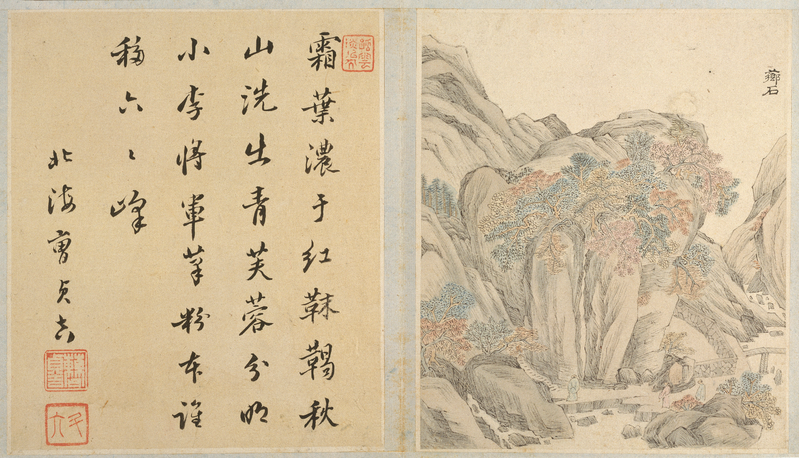 霜葉濃于紅靺鞨秋
山洗出青芙蓉分明
小李將軍筆粉本誰
移六〻峰
北海曹貞吉
石